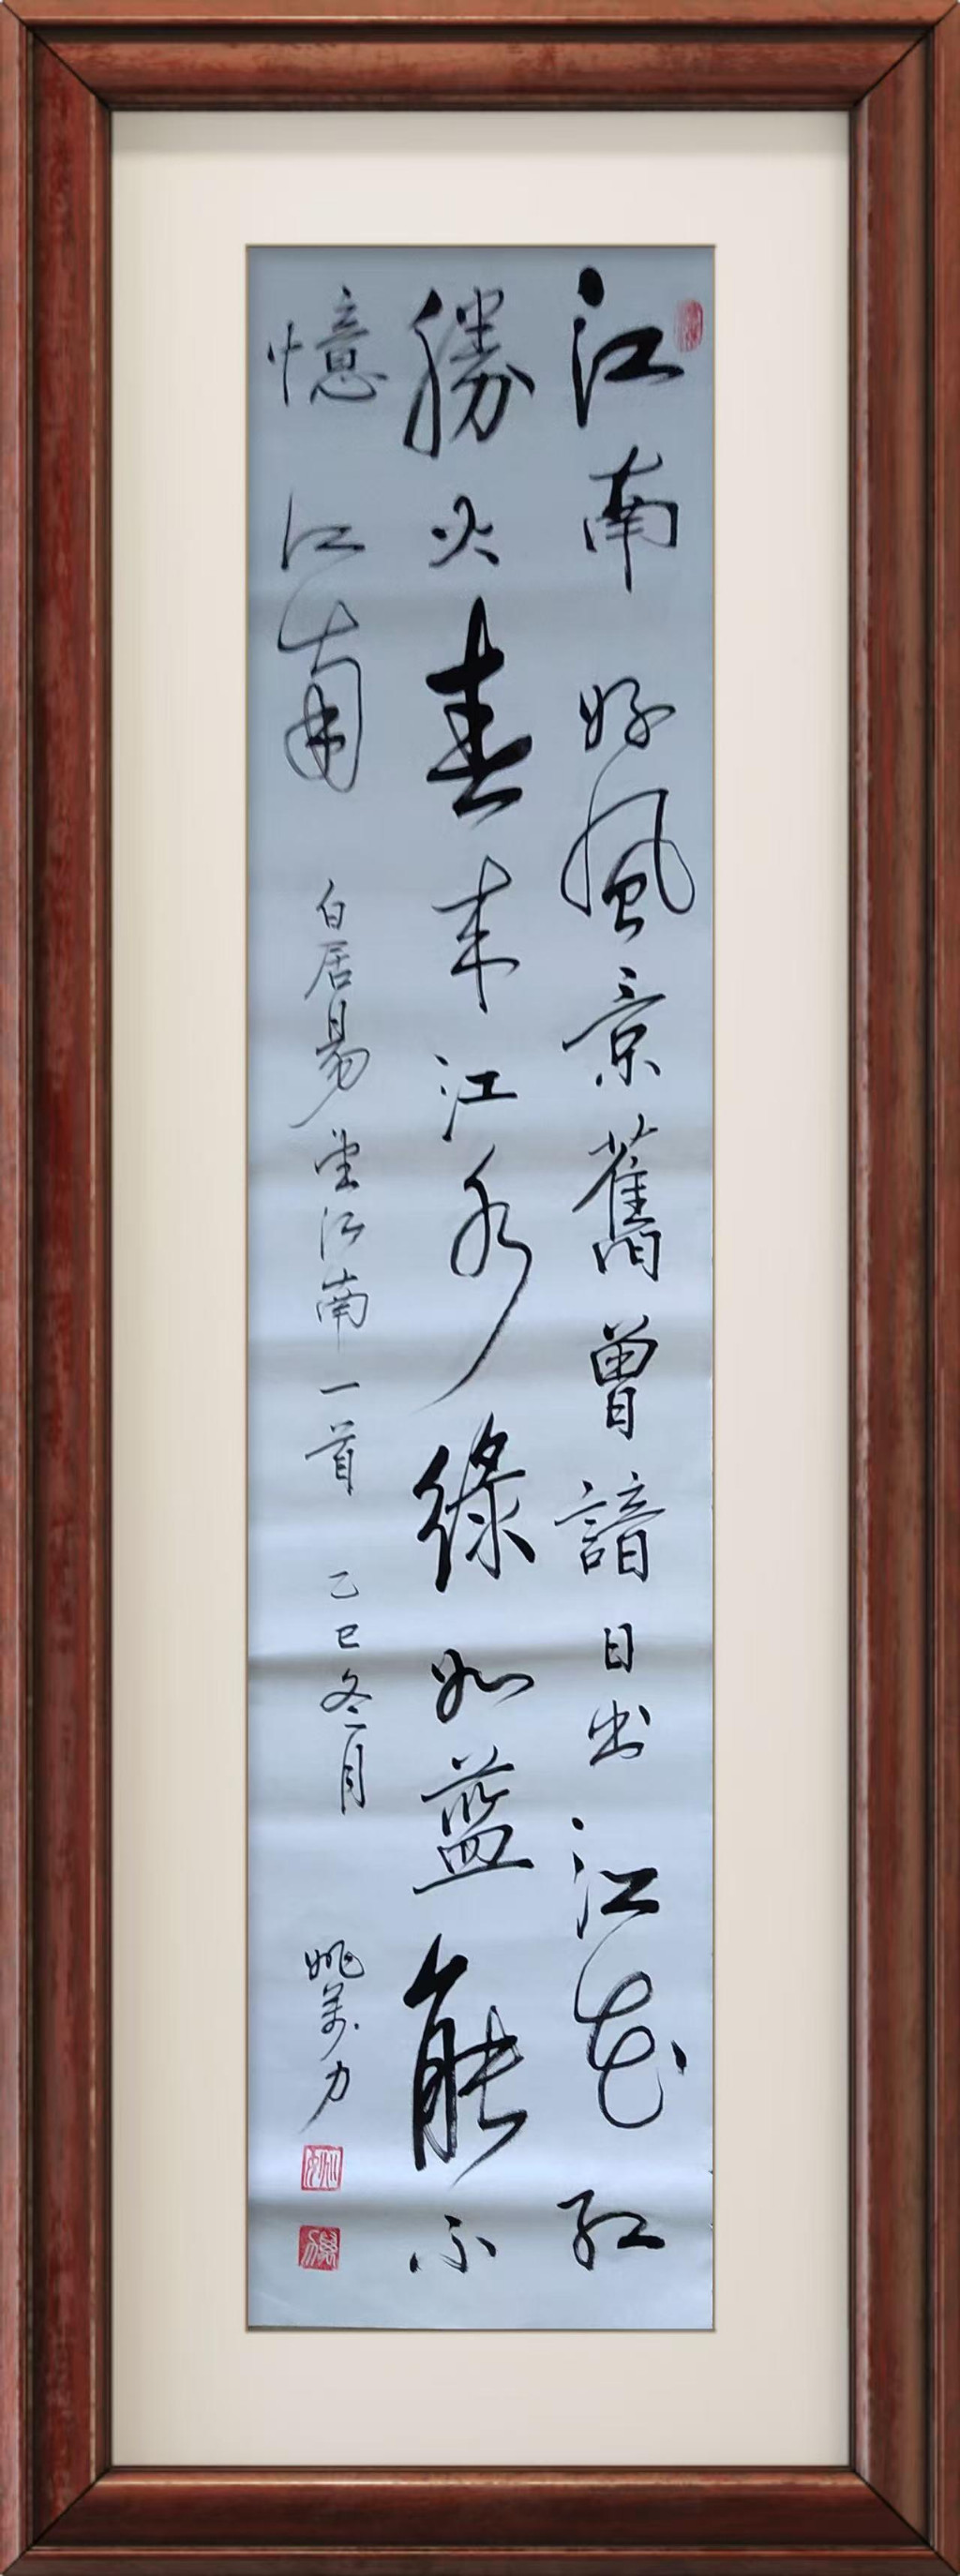 江南好風景舊曾諳日出江花紅
勝火春来江水綠如藍能不
憶江南 白居易望江南一首 乙巳冬月 姚萬力